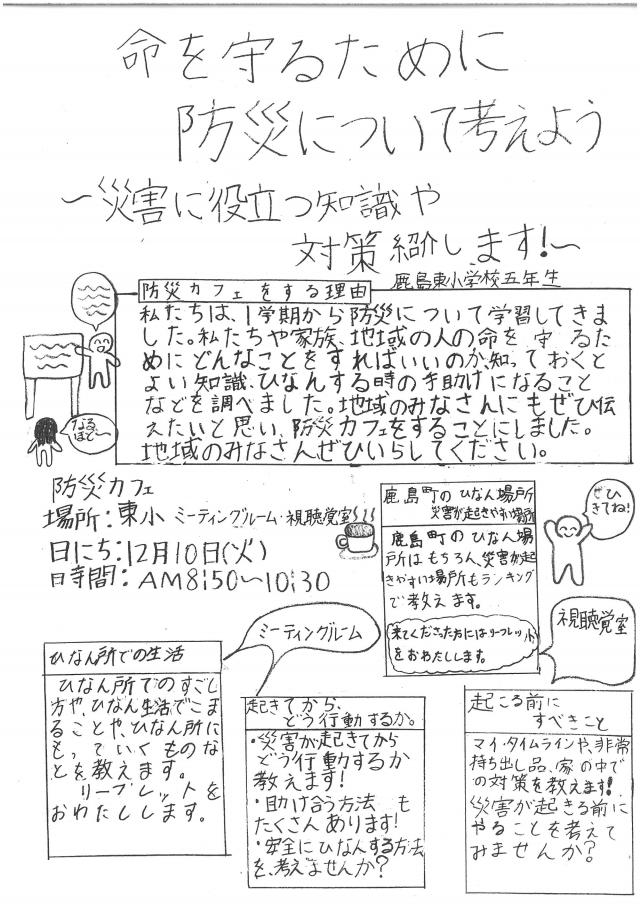 命を守るために
防災について考えよう
～災害に役立つ知識や
対策紹介します!～
鹿島東小学校五年生
防災カフェをする理由
私たちは、1学期から防災について学習してきま
した。私たちや家族、地域の人の命を守るた
めにどんなことをすればいいのか、知っておくと
よい知識、ひなんする時の手助けになること
などを調べました。地域のみなさんにもぜひ伝
えたいと思い、防災カフェをすることにしました。
地域のみなさんぜひいらしてください。
なる
ほど～
防災カフェ
場所:東小 ミーティングルーム・視聴覚室
日にち:12月10日(火)
日時間:AM8:50～10:30
鹿島町のひなん場所
災害が起きやすい場所
鹿島町のひなん場
所はもちろん、災害が起
きやすい場所もランキング
で教えます。
来てくださった方にはリーフレット
をおわたしします。
ぜひ
きてね!
視聴覚室
ミーティングルーム
ひなん所での生活
ひなん所でのすごし
方や、ひなん生活でこま
ることや、ひなん所に
もっていくものな
とを教えます。
リーブレットを
おわたしします。
起きてから、
どう行動するか。
・災害が起きてから
どう行動するか
教えます!
・助け合う方法も
たくさんあります!
・安全にひなんする方法
を、考えませんか?
起こる前に
すべきこと
マイ・タイムラインや、非常
持ち出し品、家の中で
の対策を教えます!
災害が起きる前に
やることを考えて
みませんか?